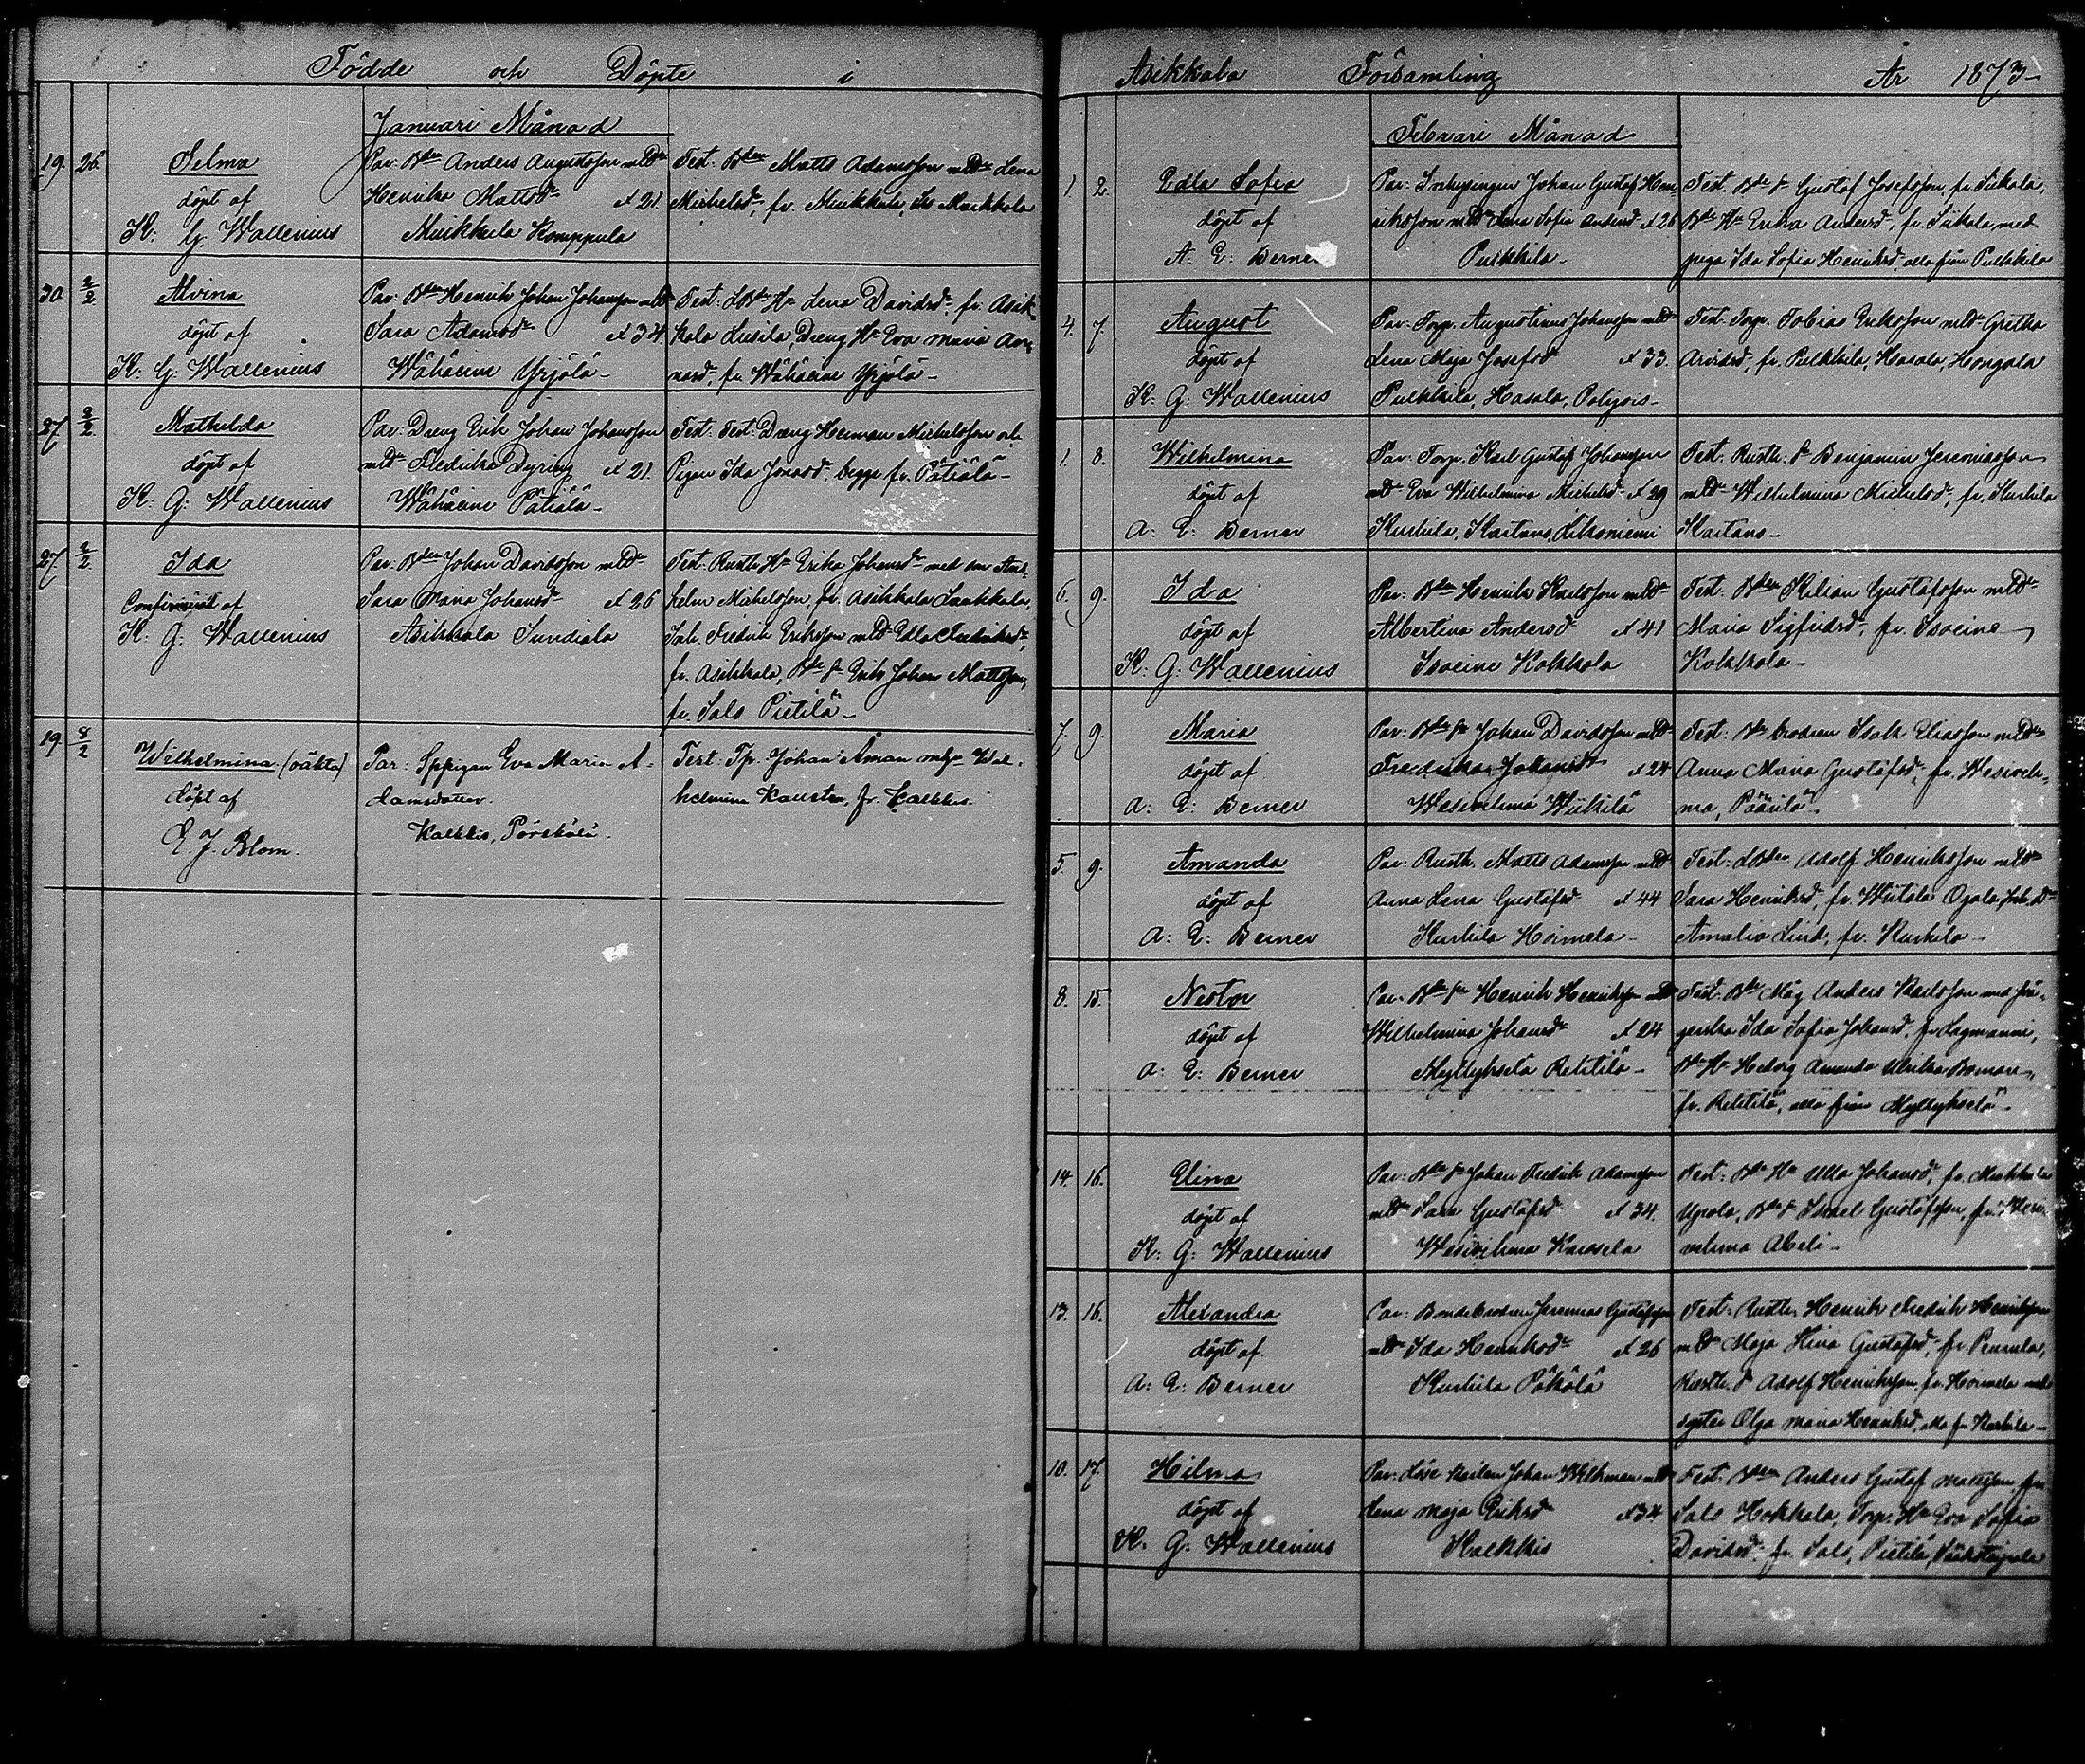 Födde och Döpte i
Januari Månad
19. 26. Selma
döpt af
K. G. Wallenius
Par: Bden Anders Augustsson mLda
Henrika Mattsdr æt 21.
Muikkula Komppula
Test. Bden Matts Adamsson mLda Lena
Michelsdr, fr. Muikkula,
30 2/2 Alvina
döpt af
K. G. Wallenius
Par: Bden Henrik Johan Johansson mLda
Sara Adamsdr æt 34.
Wähäeine Yrjölä
Test: LBde Hu Lena Davidsdr fr. Asik-
kala Dreng Hu Eva Maria
fr. Wähäeine Yrjölä
27 2/2 Mathilda
döpt af
K. G. Wallenius
Par: Dreng Erik Johan Johansson
mLda Fredrika Dyring æt 21.
Wähäeine Pätiälä
Test: Test: Dreng Herman Michelsson och
Pigan Ida Jonasdr, begge fr. Pätiälä
27. 2/2 Ida
Confirmerat af
K. G. Wallenius
Par: Bden Johan Davidsson mLda
Sara Maria Johansdr æt 26
Asikkala Sundiala
Test: Rusth. Hu Erika Johansdr med son
Michelsson, fr. Asikkala
Fredrik Eriksson mLda Edla
fr. Asikkala, Bde Sn Erik Johan Mattsson,
fr. Sals Pietilä
19. 8/2 Wilhelmina (oäkta)
döpt af
E. J. Blom.
Par: Eva Maria A-
damsdotter.
Kalkkis, Pörskölä.
Test: Tp. Johan Åman Wil-
helmina fr. Kalkkis.
Asikkala Församling År 1873
Februari Månad
1. 2. Edla Sofia
döpt af
A. E. Berner
Par: Inhysingen Johan Gustaf Hen-
riksson mLda Lena Sofia Andersd æt 26
Pulkkila
Test. Bde Sn Gustaf Josefsson, fr. Siikala,
Bde Hu Erika Andersd, fr. Siikala med
piga Ida Sofia Henriksd, alla från Pulkkila
4. 7. August
döpt af
K. G. Wallenius
Par: Torp. Augustinus Johansson mLda
Lena Maja Josefsd æt 33.
Pulkkila, Hasala,
Test. Torp. Tobias Eriksson mLda Gretha
Arvidsd, fr. Pulkkila, Hasala,
1. 8. Wilhelmina
döpt af
A. E. Berner
Par: Torp. Karl Gustaf Johansson
mLda Eva Wilhelmina Michelsd æt 29
Kurhila, Kartano,
Test: Rusth. Sn Benjamin Jeremiasson
mLda Wilhelmina Michelsdr, fr. Kurhila
Kartano
6. 9. Ida
döpt af
K. G. Wallenius
Par: Bden Henrik Karlsson mLda
Albertina Andersdr æt 41
Isoeine Kokkola
Test: Bden Kilian Gustafsson mLda
Maria Sigfridsdr, fr. Isoeine
Kokkola
7. 9. Maria
döpt af
A. E. Berner
Par: Bde Sn Johan Davidsson mLda
Fredrika Johansdr æt 24
Wesivehma Wiikilä
Test: Bde brodren Isak Eliasson mLda
Anna Maria Gustafsd, fr. Wesiveh-
ma, Päärilä
5. 9. Amanda
döpt af
A. E. Berner
Par: Rusth. Matts Adamsson mLda
Anna Lena Gustafsd æt 44
Kurhila Hörmela
Test: LBden Adolf Henriksson mLda
Sara Henriksd, fr. Ojala,
Amalia Lind, fr. Kurhila
8. 15. Nestor
döpt af
A. E. Berner
Par: Bde Sn Henrik Henriksson mLda
Wilhelmina Johansdr æt 24
Myllykselä Retitilä
Test: Bde Måg Anders Karlsson med
Ida Sofia Johansd, fr. Lagmanni,
Bde Hu Hedvig Amanda Ulrika
fr. Retitilä, alla från Myllykselä
14. 16. Elina
döpt af
K. G. Wallenius
Par: Bde Sn Johan Fredrik Adamsson
mLda Sara Gustafsd æt 34.
Wesivehma Karsela
Test: Bde Hu Ulla Johansd, fr.
Bde Sn Israel Gustafsson, från Wesi-
vehma Abeli
13. 16. Alexandra
döpt af
A. E. Berner
Par: Bondebrodren Jeremias Gustafsson
mLda Ida Henriksdr æt 26
Kurhila Pökölä
Test: Rusth. Henrik Fredrik Henriksson
mLda Maja Stina Gustafsd, fr.
Rusth. S Adolf Henriksson, fr. Hörmela med
syster Olga Maria Henriksd, alla fr. Kurhila
10. 17. Hilma
döpt af
K. G. Wallenius
Par: Lösk Karlen Johan mLda
Lena Maja Eriksd æt 34
Kalkkis
Test: Bden Anders Gustaf Mattsson, från
Sals Torp. Hu Eva Sofia
Davidsd, fr. Sals, Pietilä,